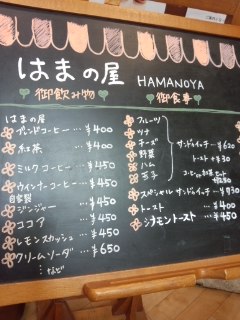 はまの屋 HAMANOYA
御飲み物
はまの屋
ブレンドコーヒー…¥400
紅茶 …¥400
ミルクコーヒー…¥450
ウインナーコーヒー…¥450
自家製
ジンジャー …¥450
ココア …¥450
レモンスカッシュ…¥450
クリームソーダ…¥650
…など
御食事
フルーツ
ツナ
チーズ
野菜
ハム
玉子
サンドイッチ…¥620
トースト +¥30
コーヒーor紅茶セット
スペシャル サンドイッチ…¥930
トースト …¥400
シナモントースト…¥450